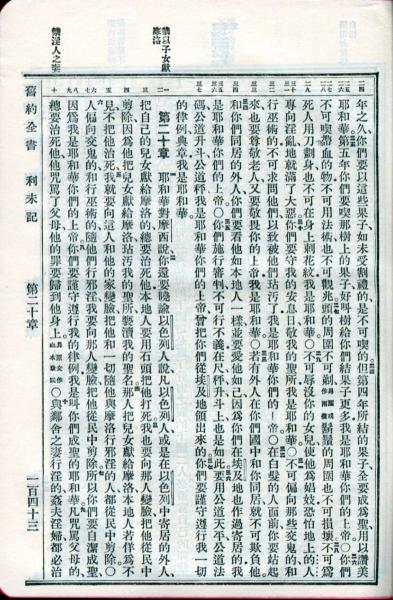 年之久你們要以這些果子如未受割禮的是不可喫的但第四年所結的果子全要成為聖用以讚美
耶和華第五年你們要喫那樹上的果子好叫樹給你們結果子更多我是耶和華你們的上帝○你們
不可喫帶血的物不可用法術也不可觀兆頭的周圍不可剃鬍鬚的周圍也不可損壞不可為
死人用刀劃身也不可在身上刺花紋我是耶和華○不可辱沒你的女兒使他為娼妓恐怕地上的人
專向淫亂地就滿了大惡你們要守我的安息日敬我的聖所我是耶和華○不可偏向那些交鬼的和
行巫術的不可求問他們以致被他們玷污了我是耶和華你們的上帝○在白髮的人面前你要站起
來也要尊敬老人又要敬畏你的上帝我是耶和華○若有外人在你們國中和你同居就不可欺負他
和你們同居的外人你們要看他如本地人一樣並要愛他如己因為你們在埃及地也作過寄居的我
是耶和華你們的上帝○你們施行審判不可行不義在尺秤升斗上也是如此要用公道天平公道法
碼公道升斗公道秤我是耶和華你們的上帝曾把你們從埃及地領出來的你們要謹守遵行我一切
的律例典章我是耶和華
第二十章 耶和華對摩西說你還要曉諭以色列人說凡以色列人或是在以色列中寄居的外人
把自己的兒女獻給摩洛的總要治死他本地人要用石頭把他打死我也要向那人變臉把他從民中
剪除因為他把兒女獻給摩洛玷污我的聖所褻瀆我的聖名那人把兒女獻給摩洛本地人若佯為不
見不把他治死我就要向這人和他的家變臉把他和一切隨他與摩洛行邪淫的人都從民中剪除○
人偏向交鬼的和行巫術的隨他們行邪淫我要向那人變臉把他從民中剪除所以你們要自潔成聖
因為我是耶和華你們的上帝你們要謹守遵行我的律例我是叫你們成聖的耶和華凡咒罵父母的
總要治死他他咒罵了父母他的罪要歸到他身上○與鄰舍之妻行淫的姦夫淫婦都必治
舊約全書 利未記 第二十章 一百四十三